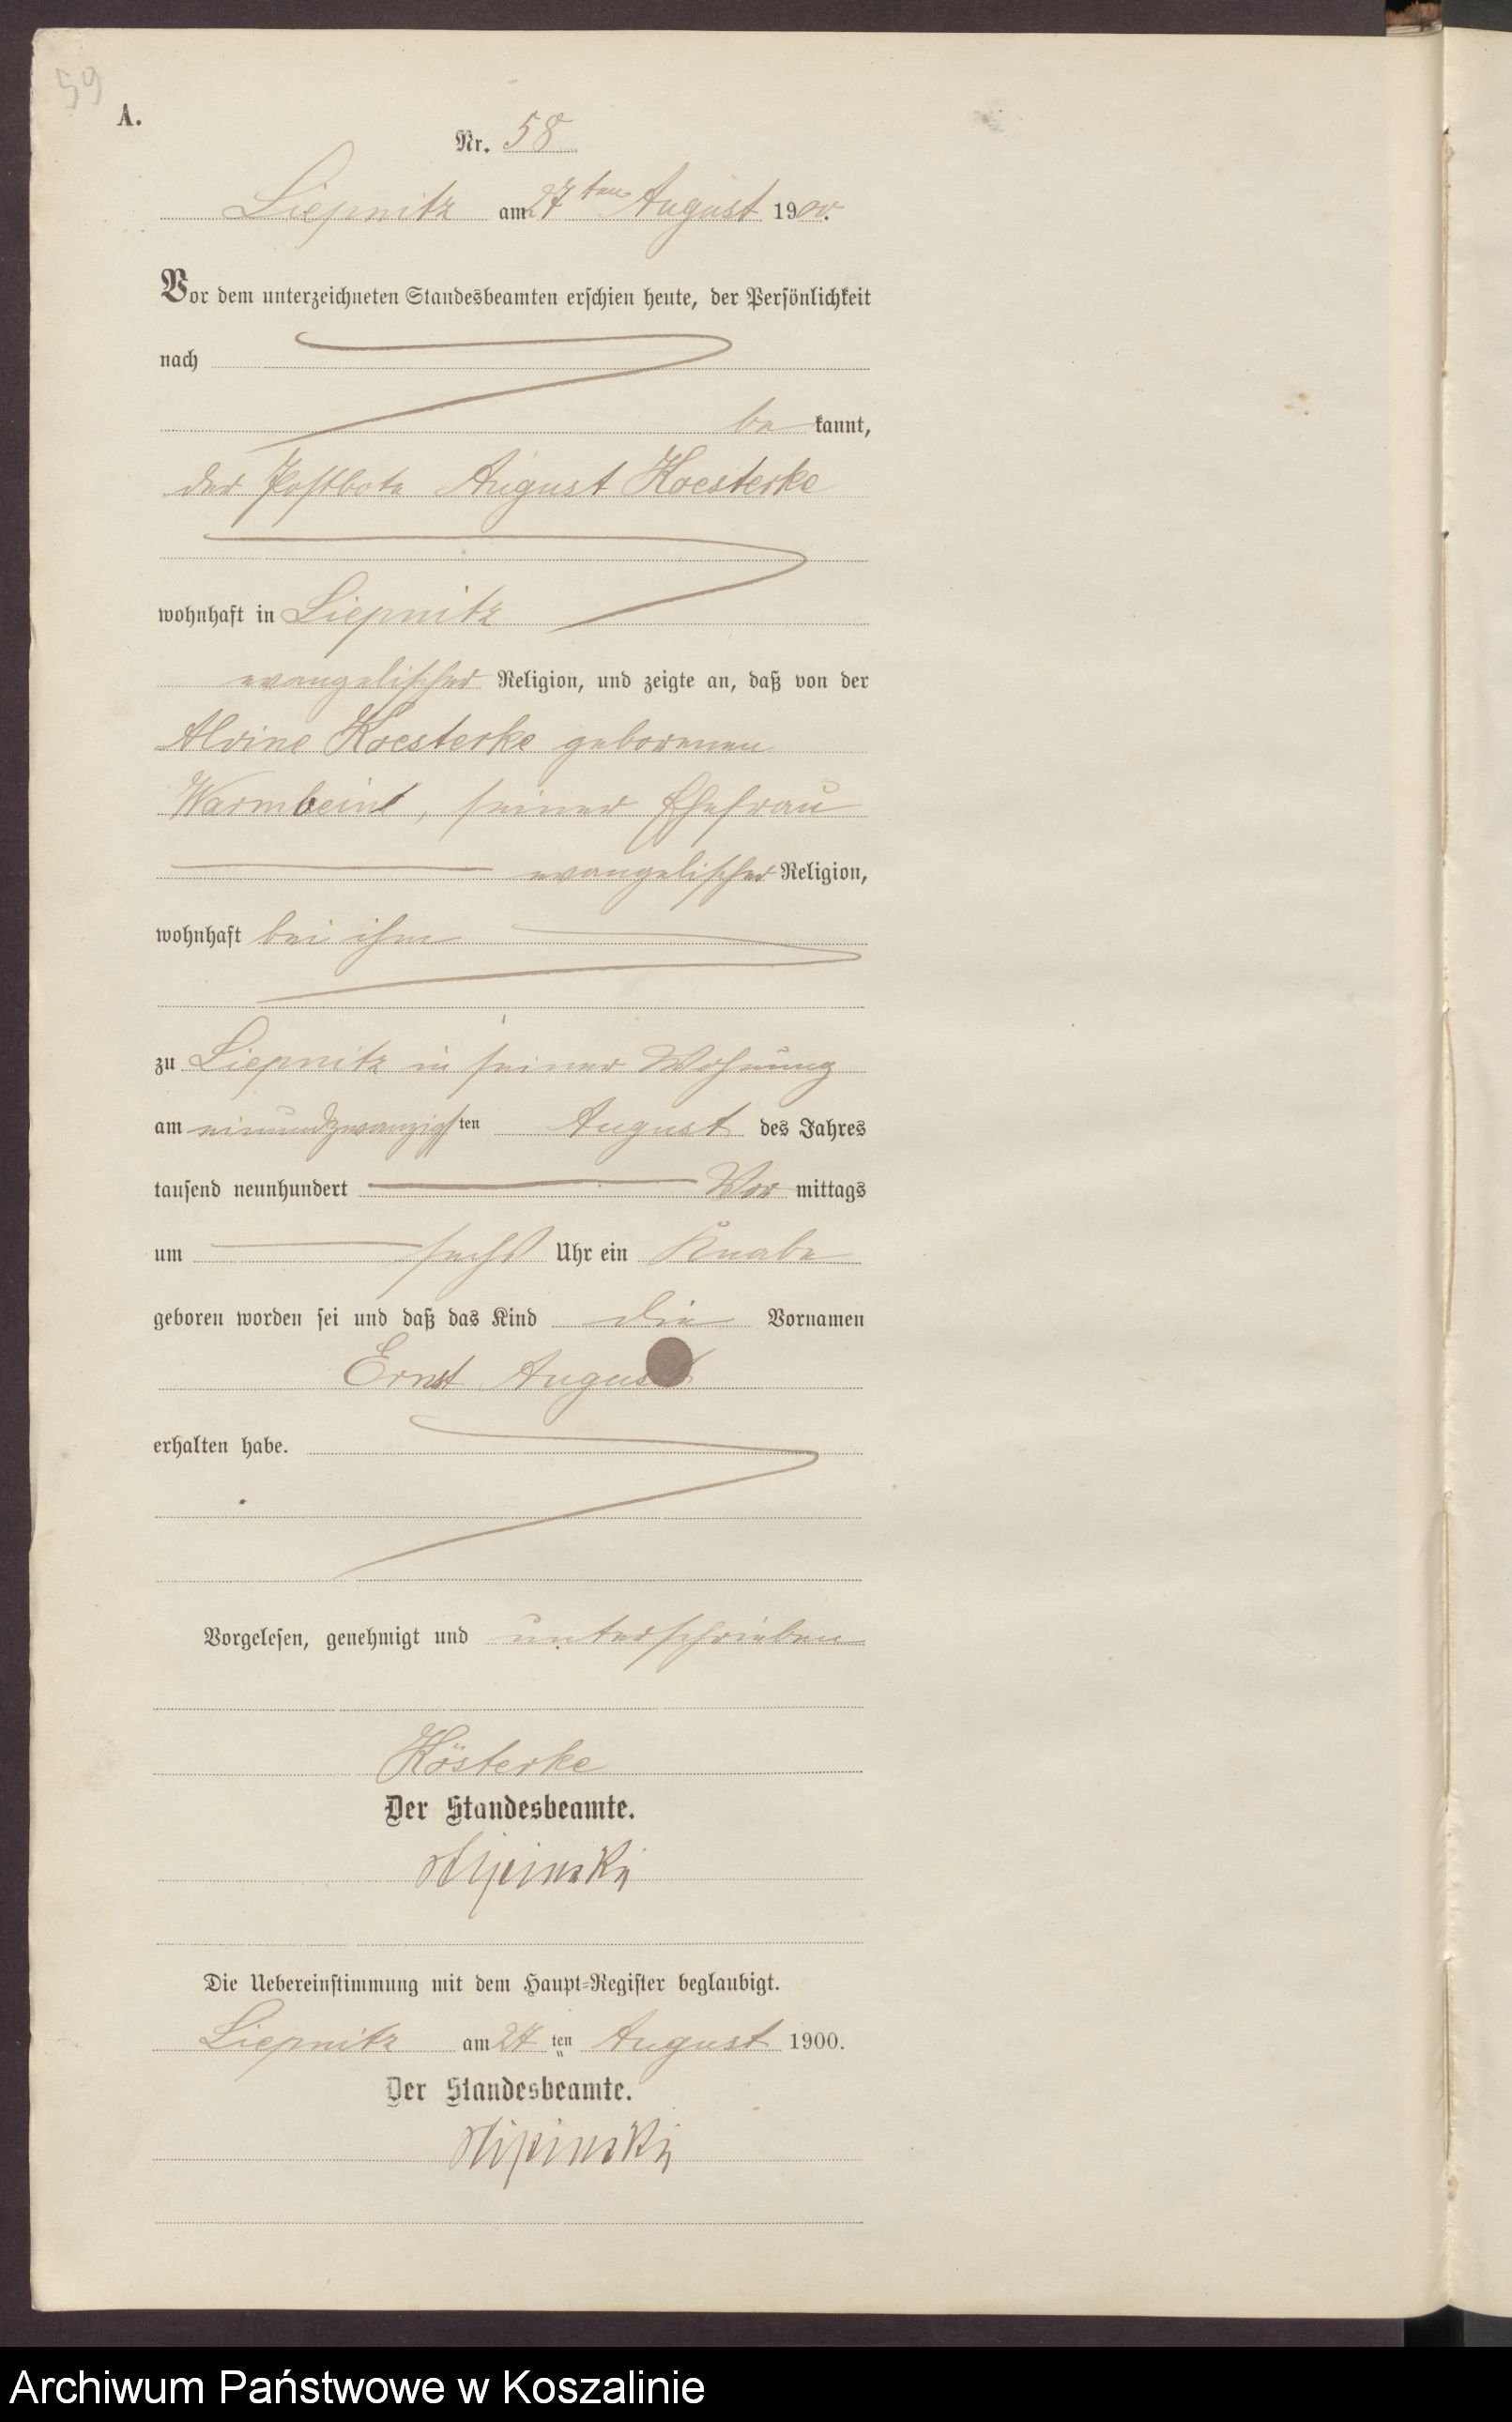 59
A.
Nr. 58
Liepnitz am 27ten August 1900.
Vor dem unterzeichneten Standesbeamten erschien heute, der Persönlichkeit
nach
be kannt,
der Postbote August Koesterke
wohnhaft in Liepnitz
evangelischer Religion, und zeigte an, daß von der
Alvine Koesterke geborenen
Warmbein, seiner Ehefrau
evangelischer Religion,
wohnhaft bei ihm
zu Liepnitz in seiner Wohnung
am einundzwanzigsten August des Jahres
tausend neunhundert Vor mittags
um sechs Uhr ein Knabe
geboren worden sei und daß das Kind die Vornamen
Ernst August
erhalten habe.
Vorgelesen, genehmigt und unterschrieben
Kösterke
Der Standesbeamte.
Die Uebereinstimmung mit dem Haupt-Register beglaubigt.
Liepnitz am 27 ten August 1900.
Der Standesbeamte.
Archiwum Państwowe w Koszalinie